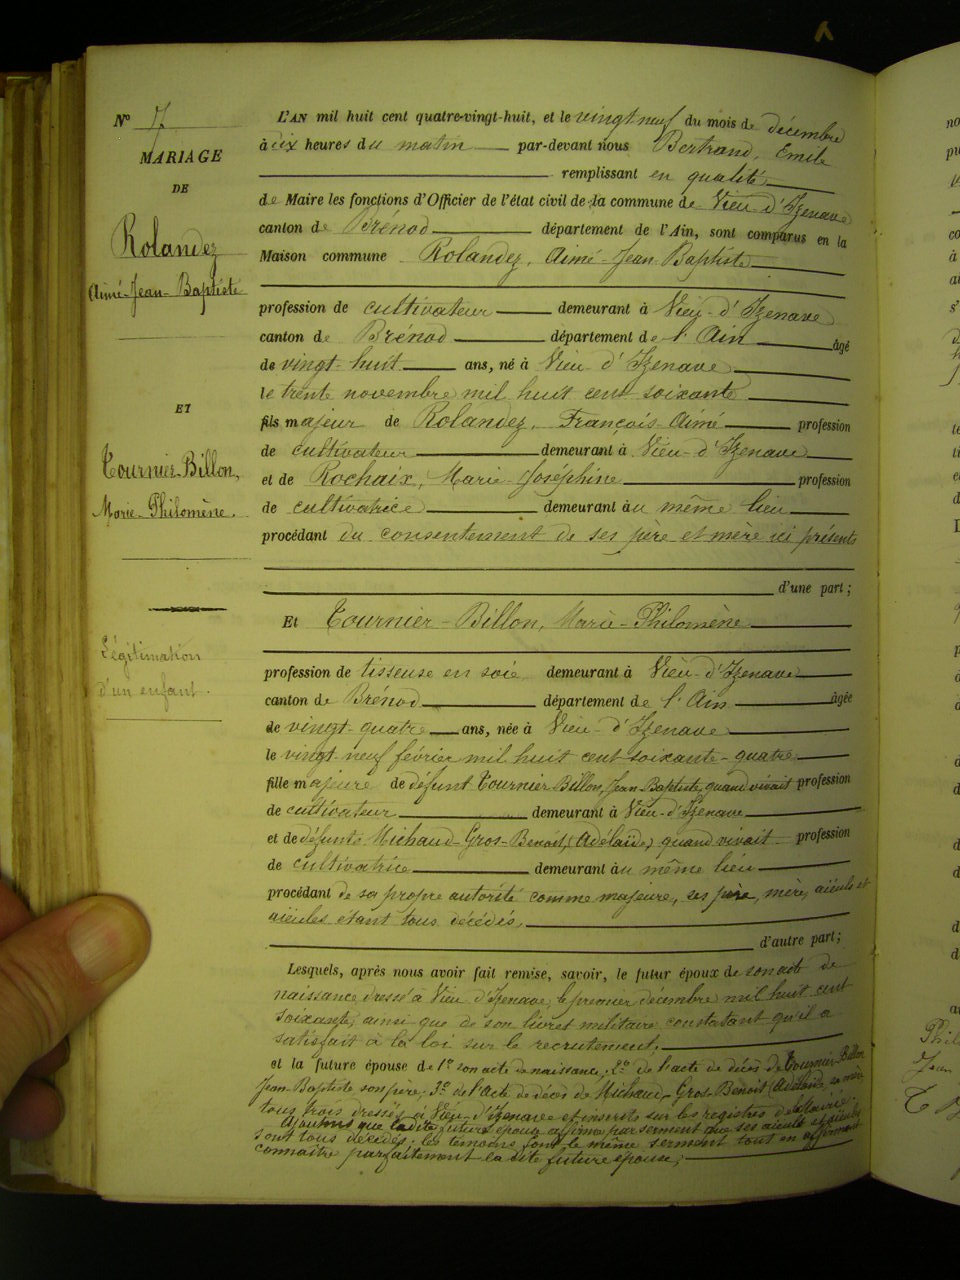 N° 7
MARIAGE
DE
Rolandez
Aimé-Jean-Baptiste
ET
Tournier-Billon,
Marie-Philomène.
Légitimation
d'un enfant.
L'AN mil huit cent quatre-vingt-huit, et le vingt neuf du mois de décembre
à dix heures du matin par-devant nous Bertrand, Emile
remplissant en qualité
de Maire les fonctions d'Officier de l'état civil de la commune de Vieu-d'Izenave
canton de Brénod département de l'Ain, sont comparus en la
Maison commune Rolandez, Aimé-Jean-Baptiste
profession de cultivateur demeurant à Vieu-d'Izenave
canton de Brénod département de l'Ain âgé
de vingt-huit ans, né à Vieu-d'Izenave
le trente novembre mil huit cent soixante
fils majeur de Rolandez, François-Aimé profession
de cultivateur demeurant à Vieu-d'Izenave
et de Rochaix, Marie-Joséphine profession
de cultivatrice demeurant au même lieu
procédant du consentement de ses père et mère ici présents
d'une part ;
Et Tournier-Billon, Marie-Philomène
profession de tisseuse en soie demeurant à Vieu-d'Izenave
canton de Brénod département de l'Ain âgée
de vingt-quatre ans, née à Vieu-d'Izenave
le vingt-neuf février mil huit cent soixante-quatre
fille majeure de défunt Tournier Billon, Jean-Baptiste, quand vivait profession
de cultivateur demeurant à Vieu-d'Izenave
et de défunte Michaud-Gros-Benoit, (Adélaïde) quand vivait profession
de cultivatrice demeurant au même lieu
procédant de sa propre autorité comme majeure, ses père, mère, aïeuls et
aïeules étant tous décédés,
d'autre part ;
Lesquels, après nous avoir fait remise, savoir, le futur époux de son acte de
naissance dressé à Vieu d'Izenave, le premier décembre mil huit cent
soixante, ainsi que de son livret militaire constatant qu'il a
satisfait à la loi sur le recrutement,
et la future épouse de 1° son acte de naissance; 2° de l'acte de décès de Tournier-Billon
Jean-Baptiste son père; 3° de l'Acte de décès de Michaud-Gros-Benoit (Adélaïde) sa mère
tous trois dressés à Vieu-d'Izenave et inscrits sur les registres de la Mairie;
Ajoutons que la dite future épouse affirme par serment que ses aïeuls et aïeules
sont tous décédés; les témoins font le même serment tout en affirmant
connaître parfaitement la dite future épouse;